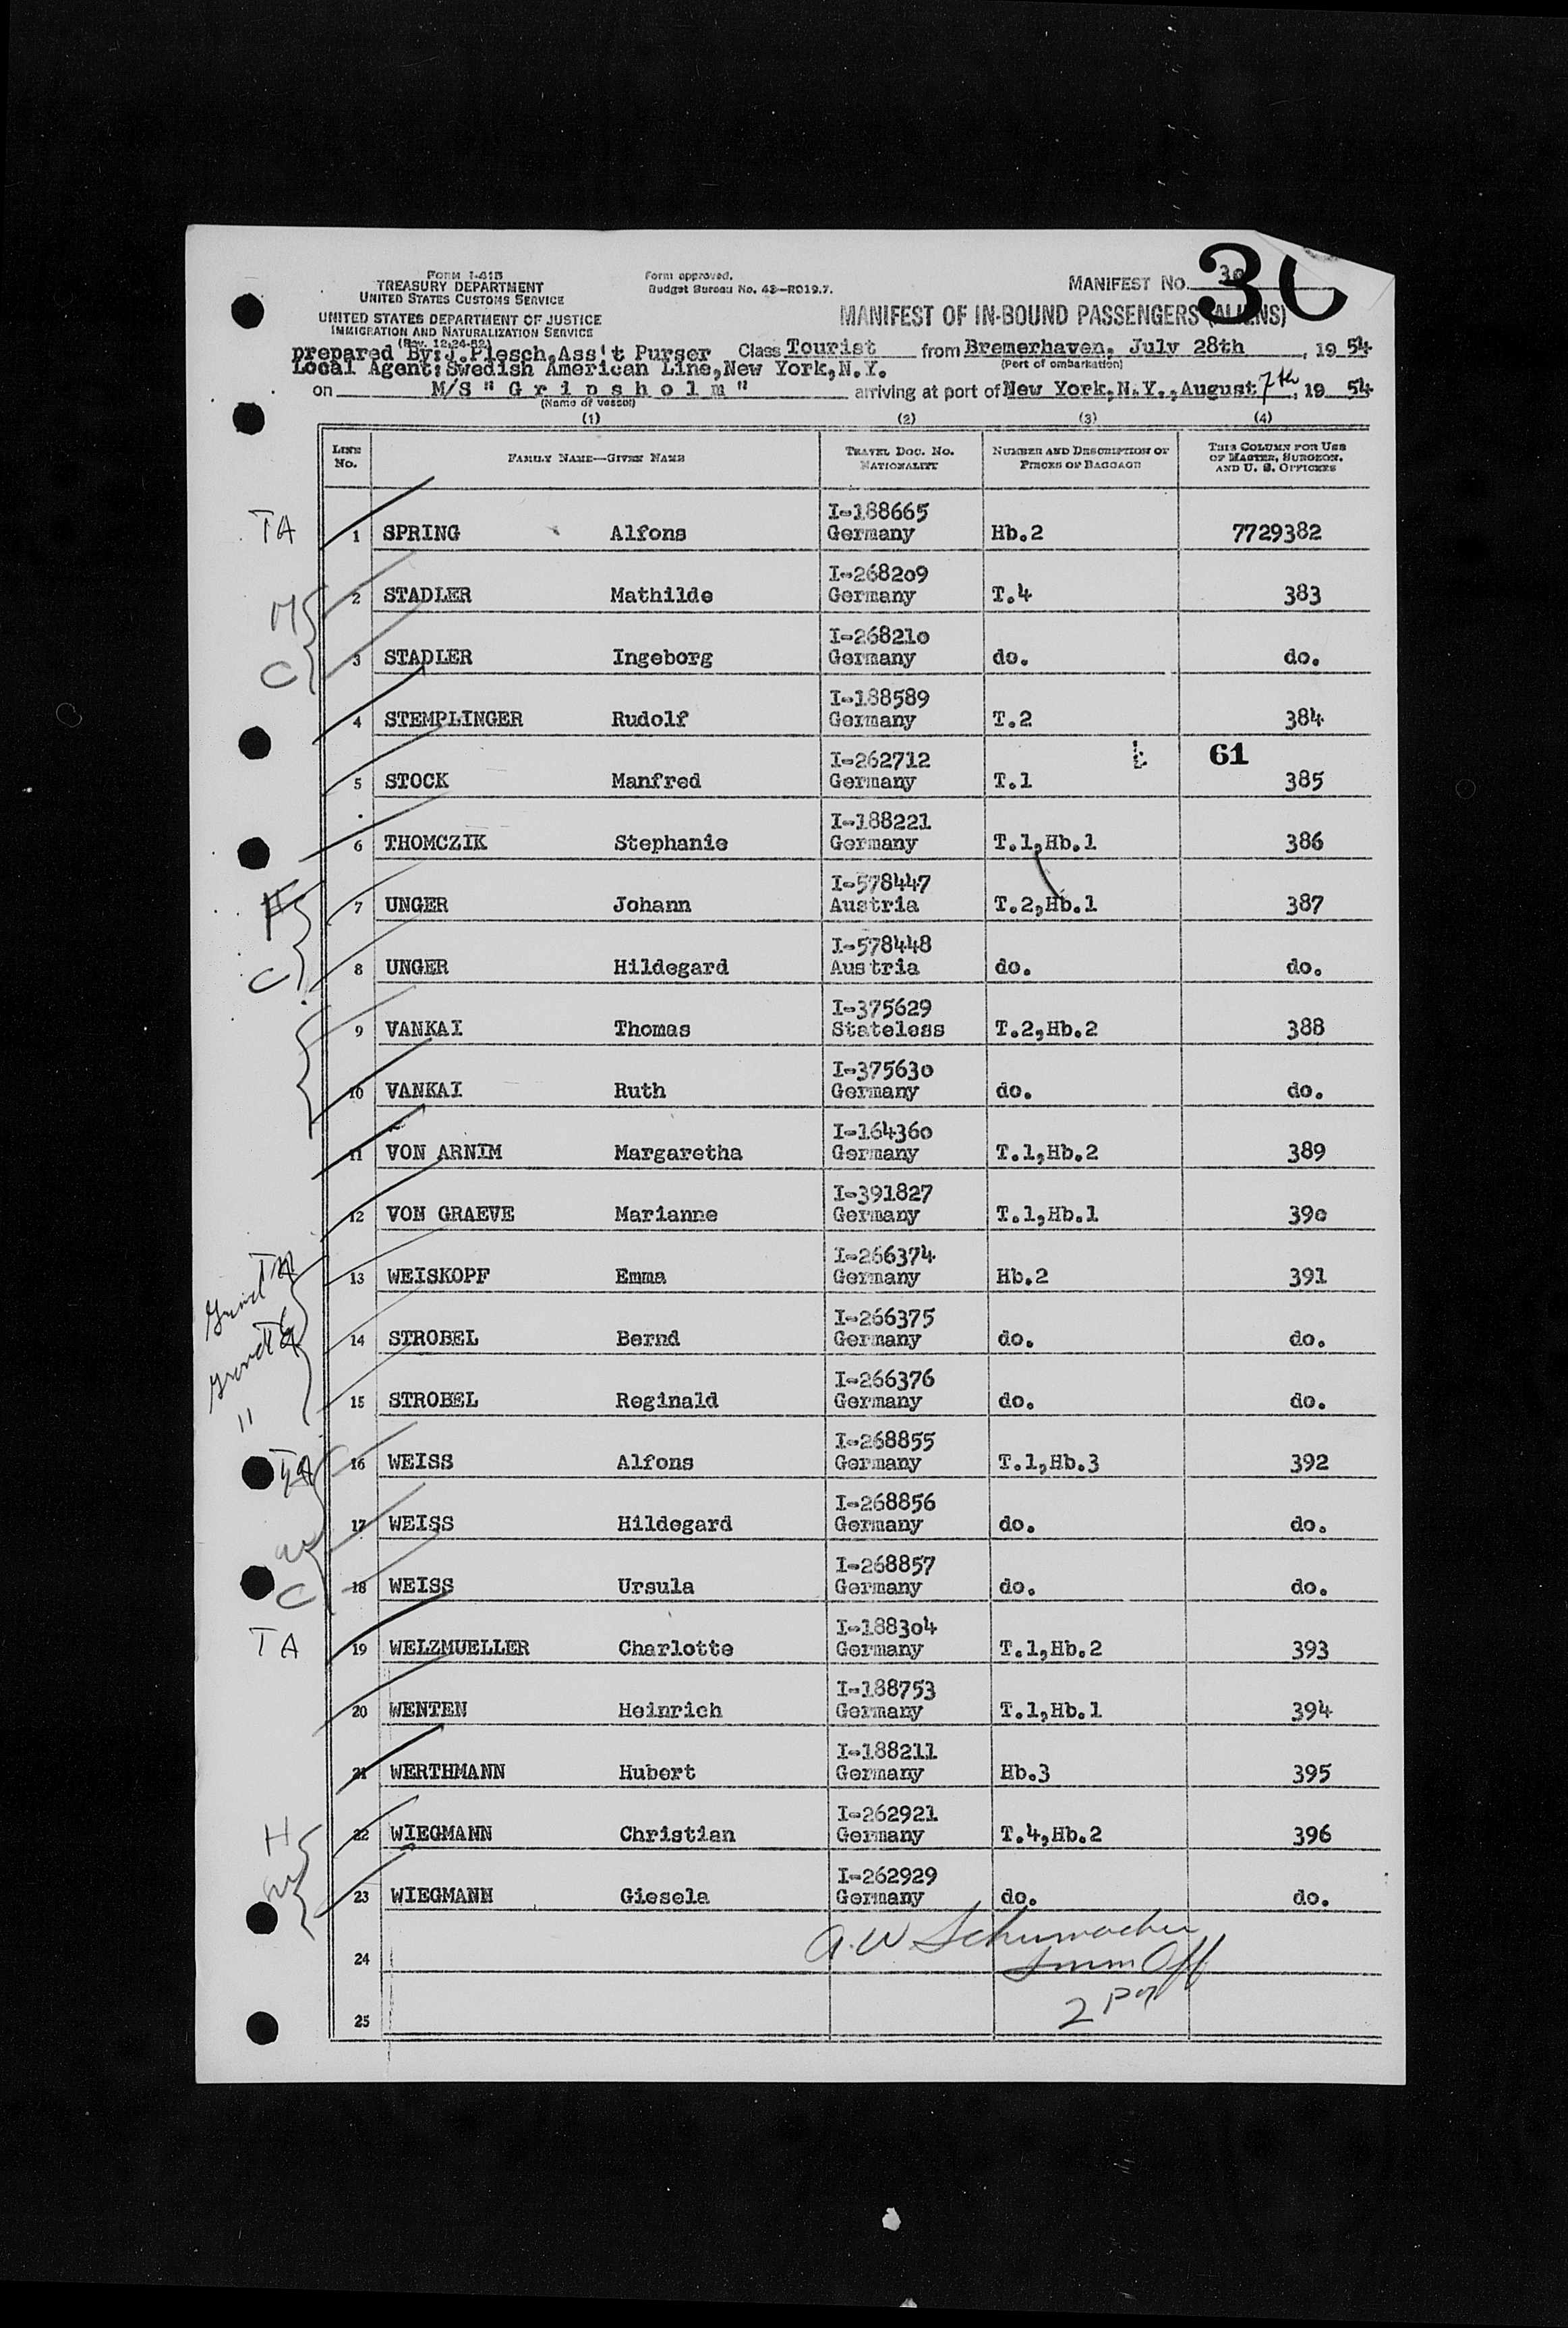 Form I-415
TREASURY DEPARTMENT
UNITED STATES CUSTOMS SERVICE
UNITED STATES DEPARTMENT OF JUSTICE
IMMIGRATION AND NATURALIZATION SERVICE
(Rev. 12-24-52)
Form approved.
Budget Bureau No. 43-R019.7.
MANIFEST No. 30
30
MANIFEST OF IN-BOUND PASSENGERS (ALIENS)
prepared By: J. Plesch, Ass't Purser Class Tourist from Bremerhaven, July 28th, 1954
Local Agent: Swedish American Line, New York, N.Y. (Port of embarkation)
on M/S " G r i p s h o l m " arriving at port of New York, N.Y., August 7th, 1954
(Name of vessel)
(1) (2) (3) (4)
LINE No. FAMILY NAME—GIVEN NAME TRAVEL DOC. NO. NATIONALITY NUMBER AND DESCRIPTION OF PIECES OF BAGGAGE THIS COLUMN FOR USE OF MASTER, SURGEON, AND U. S. OFFICERS
I-188665
TA 1 SPRING Alfons Germany Hb.2 7729382
I-268209
M 2 STADLER Mathilde Germany T.4 383
I-268210
C 3 STADLER Ingeborg Germany do. do.
I-188589
4 STEMPLINGER Rudolf Germany T.2 384
I-262712 61
5 STOCK Manfred Germany T.1 385
I-188221
6 THOMCZIK Stephanie Germany T.1,Hb.1 386
I-578447
7 UNGER Johann Austria T.2,Hb.1 387
I-578448
C 8 UNGER Hildegard Austria do. do.
I-375629
9 VANKAI Thomas Stateless T.2,Hb.2 388
I-375630
10 VANKAI Ruth Germany do. do.
I-164360
11 VON ARNIM Margaretha Germany T.1,Hb.2 389
I-391827
12 VON GRAEVE Marianne Germany T.1,Hb.1 390
I-266374
13 WEISKOPF Emma Germany Hb.2 391
I-266375
14 STROBEL Bernd Germany do. do.
I-266376
" 15 STROBEL Reginald Germany do. do.
I-268855
16 WEISS Alfons Germany T.1,Hb.3 392
I-268856
W 17 WEISS Hildegard Germany do. do.
I-268857
C 18 WEISS Ursula Germany do. do.
I-188304
TA 19 WELZMUELLER Charlotte Germany T.1,Hb.2 393
I-188753
20 WENTEN Heinrich Germany T.1,Hb.1 394
I-188211
21 WERTHMANN Hubert Germany Hb.3 395
I-262921
H 22 WIEGMANN Christian Germany T.4,Hb.2 396
I-262929
W 23 WIEGMANN Giesela Germany do. do.
A.W Schumacher
24 Imm Off
25 2